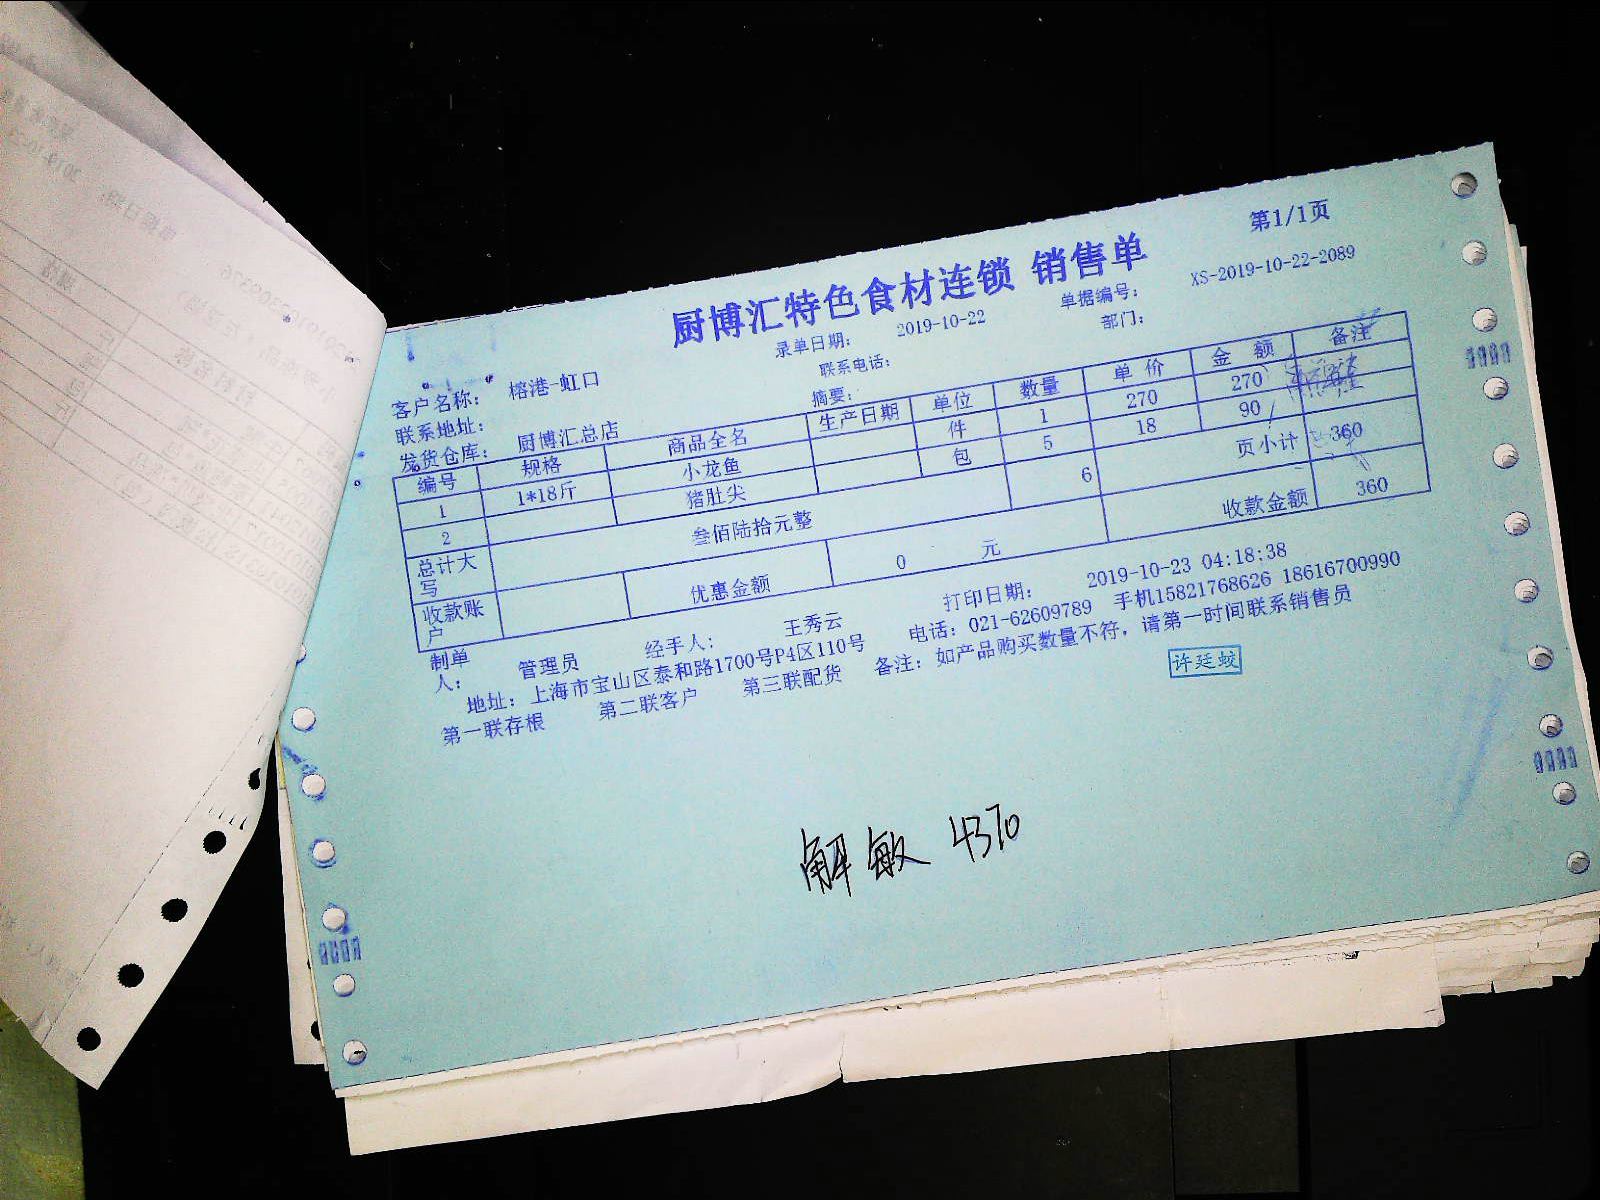 第1/1页
厨博汇特色食材连锁 销售单
录单日期： 2019-10-22 单据编号： XS-2019-10-22-2089
客户名称： 榕港-虹口 联系电话： 部门：
联系地址： 摘要：
发货仓库： 厨博汇总店
编号 规格 商品全名 生产日期 单位 数量 单价 金额 备注
1 1*18斤 小龙鱼 件 1 270 270
2 猪肚尖 包 5 18 90
页小计 360
总计大写 叁佰陆拾元整 6
收款账户 优惠金额 0 元 收款金额 360
制单人： 管理员 经手人： 王秀云 打印日期： 2019-10-23 04:18:38
地址：上海市宝山区泰和路1700号P4区110号 电话：021-62609789 手机15821768626 18616700990
第一联存根 第二联客户 第三联配货 备注：如产品购买数量不符，请第一时间联系销售员
许廷蛟
解敏 4370